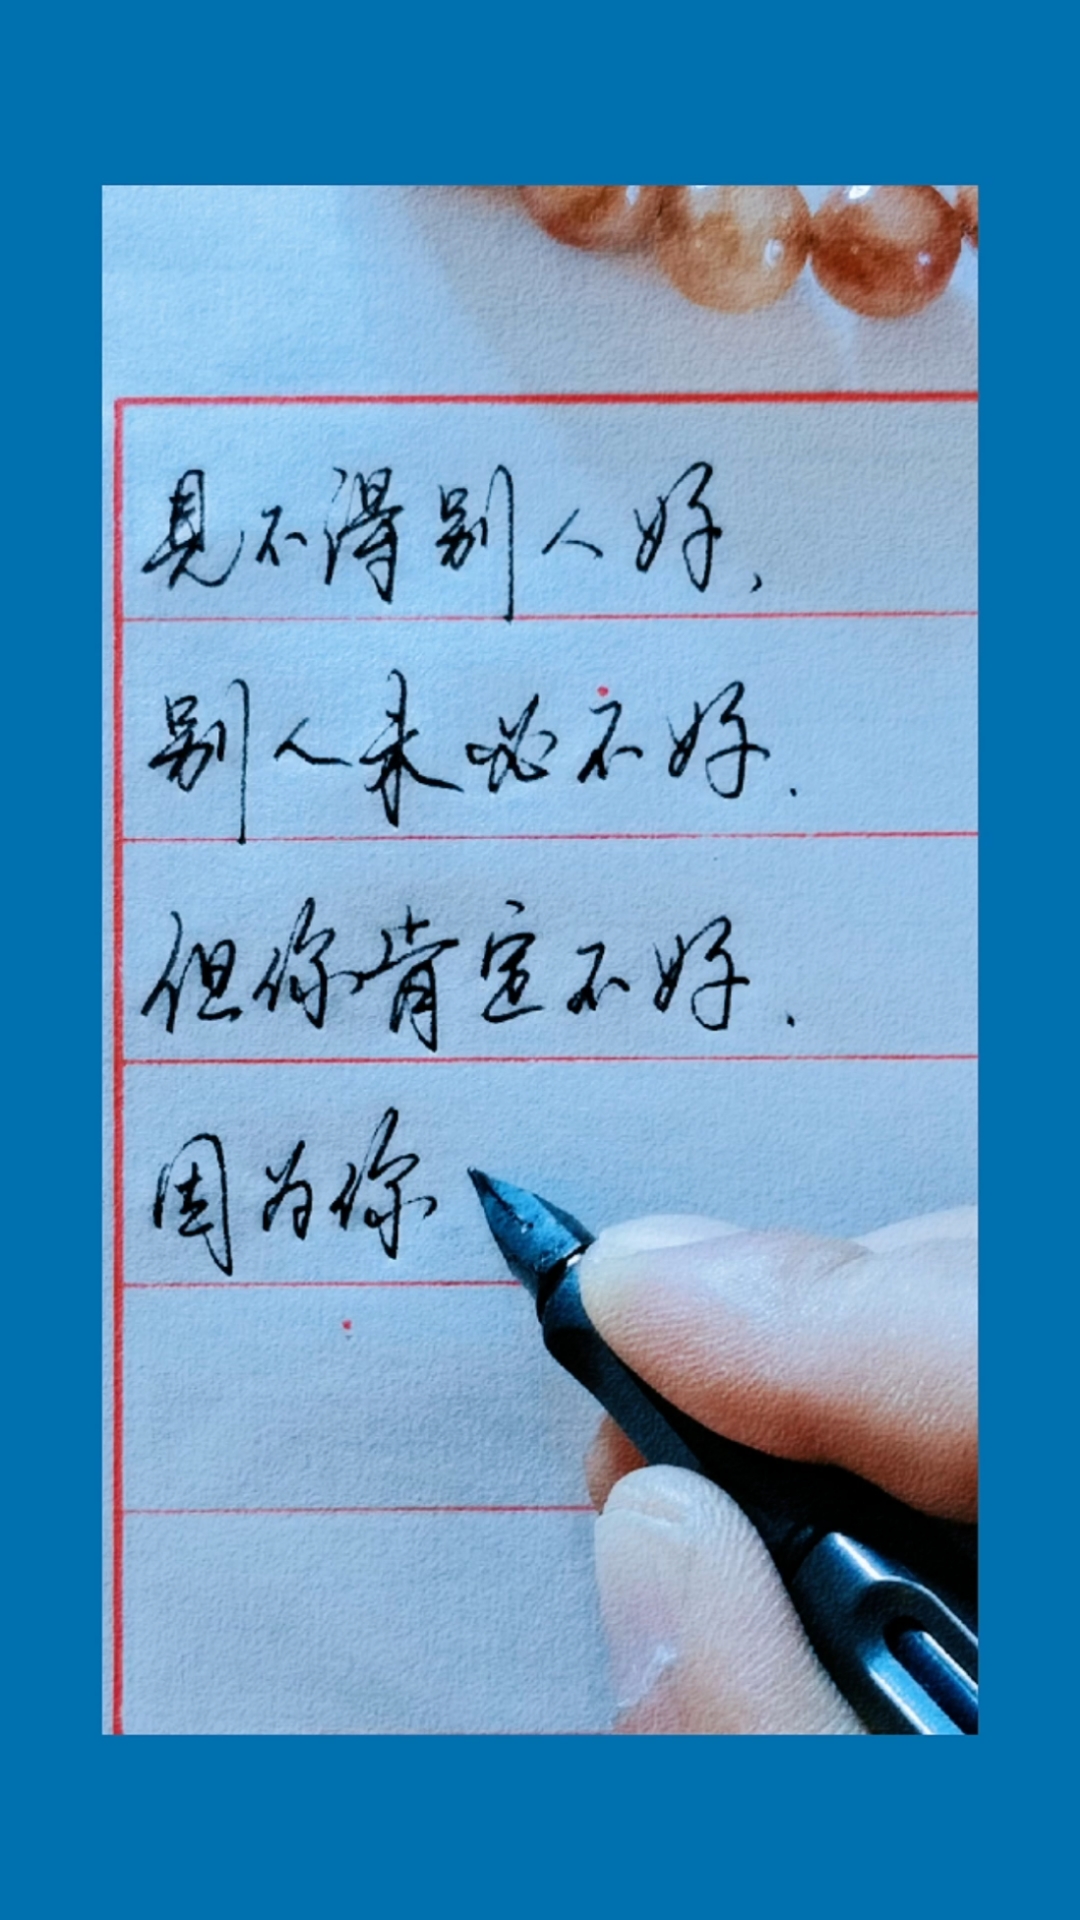 见不得别人好，
别人未必不好．
但你肯定不好．
因为你